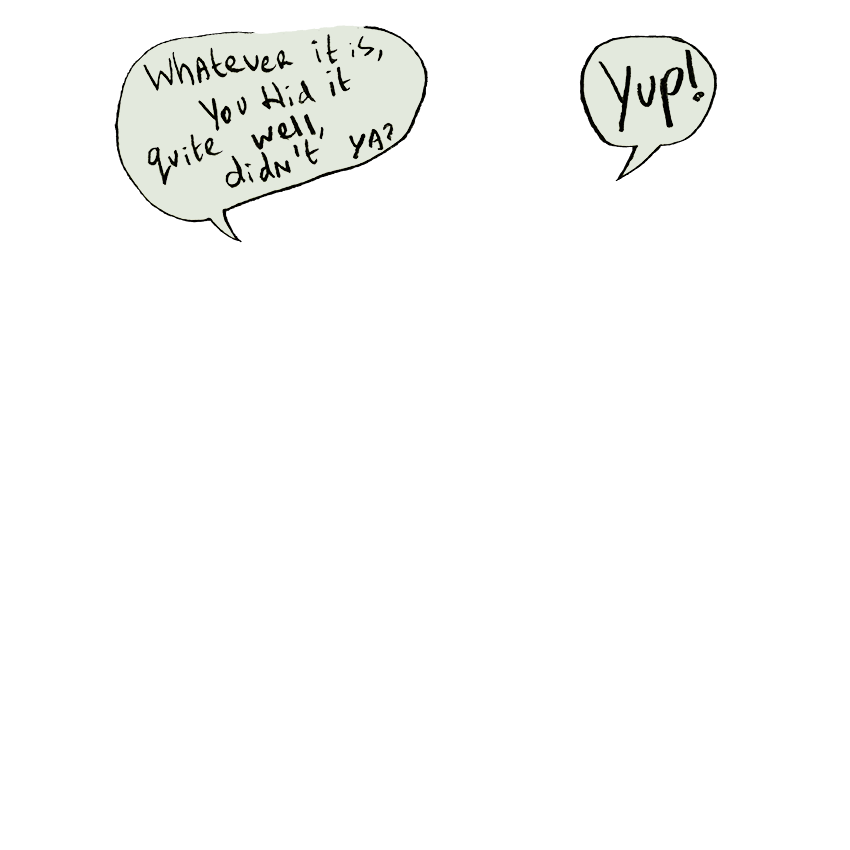 Whatever it is,
You Hid it
quite well,
didn't YA?
Yup!